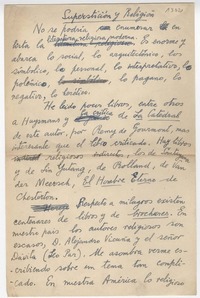 Superstición y Religión
No se podría enumerar en
esta la literatura religiosa moderna. Es enorme y
abarca lo social, lo arquitectónico, los
simbólico, lo personal, lo interpretativo, lo
polémico, lo pagano, lo
negativo, lo erótico.
He leído pocos libros, entre otros
de Huysmans y la crítica de La Catedral
de este autor, por Remy de Gourmont, más
interesante que el libro criticado. Hay libros
religiosos de
y de Lin Yutang, de Rolland, de Van
der Meersch, El Hombre Eterno de
Chesterton.
Respecto a milagros existen
centenares de libros y de brochures. En
nuestro país los autores religiosos son
escasos, D. Alejandro Vicuña y el señor
Dávila (Leo Par). Me asombra verme es-
cribiendo sobre un tema tan compli-
cado. En nuestra América lo religioso